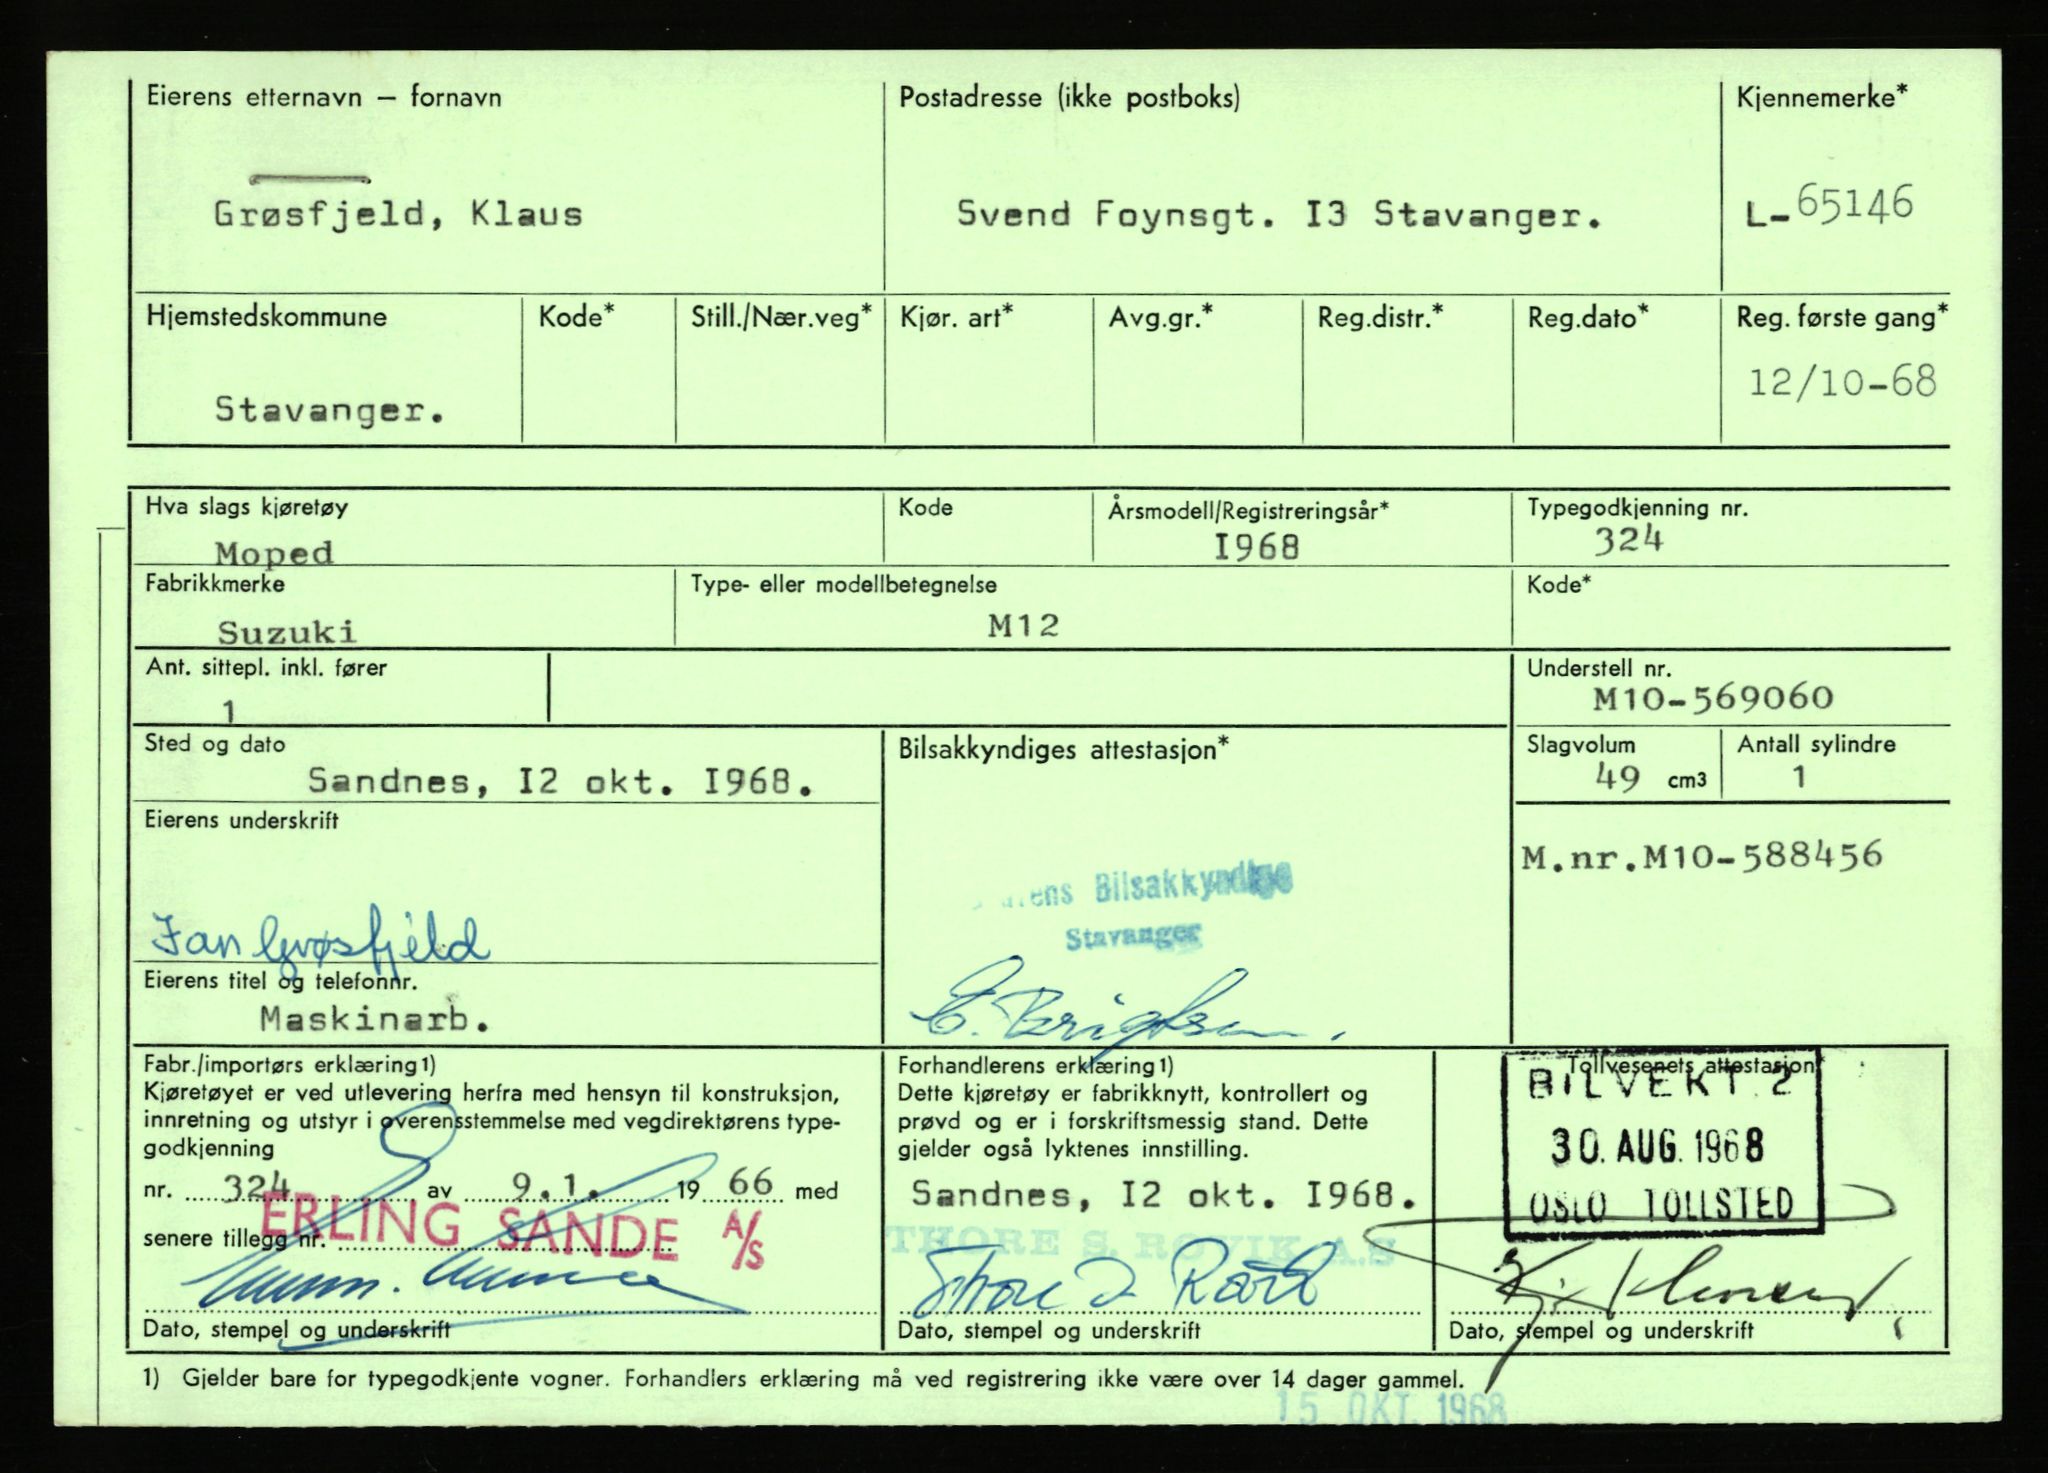 Eierens etternavn — fornavn
Grøsfjeld, Klaus
Postadresse (ikke postboks)
Svend Foynsgt. I3 Stavanger.
Kjennemerke*
L-65146
Hjemstedskommune
Stavanger.
Kode*
Still./Nær.veg*
Kjør. art*
Avg.gr.*
Reg.distr.*
Reg.dato*
Reg. første gang*
12/10-68
Hva slags kjøretøy
Moped
Kode
Årsmodell/Registreringsår*
I968
Typegodkjenning nr.
324
Fabrikkmerke
Suzuki
Type- eller modellbetegnelse
M12
Kode*
Ant. sittepl. inkl. fører
1
Understell nr.
M10-569060
Sted og dato
Sandnes, I2 okt. I968.
Bilsakkyndiges attestasjon*
Slagvolum
49 cm3
Antall sylindre
1
Eierens underskrift
Jan Grøsfjeld
M.nr.M10-588456
Bilsakkyndige
Stavanger
Eierens titel og telefonnr.
Maskinarb.
Fabr./importørs erklæring1)
Kjøretøyet er ved utlevering herfra med hensyn til konstruksjon,
innretning og utstyr i overensstemmelse med vegdirektørens type-
godkjenning
nr. 324 av 9.1. 19 66 med
senere tillegg nr.
ERLING SANDE A/S
Dato, stempel og underskrift
Forhandlerens erklæring1)
Dette kjøretøy er fabrikknytt, kontrollert og
prøvd og er i forskriftsmessig stand. Dette
gjelder også lyktenes innstilling.
Sandnes, I2 okt. I968.
THORE S. ROVIK A.S
Dato, stempel og underskrift
Tollvesenets attestasjon*
BILVEKT 2
30. AUG. 1968
OSLO TOLLSTED
Dato, stempel og underskrift
1) Gjelder bare for typegodkjente vogner. Forhandlers erklæring må ved registrering ikke være over 14 dager gammel.
15 OKT. 1968